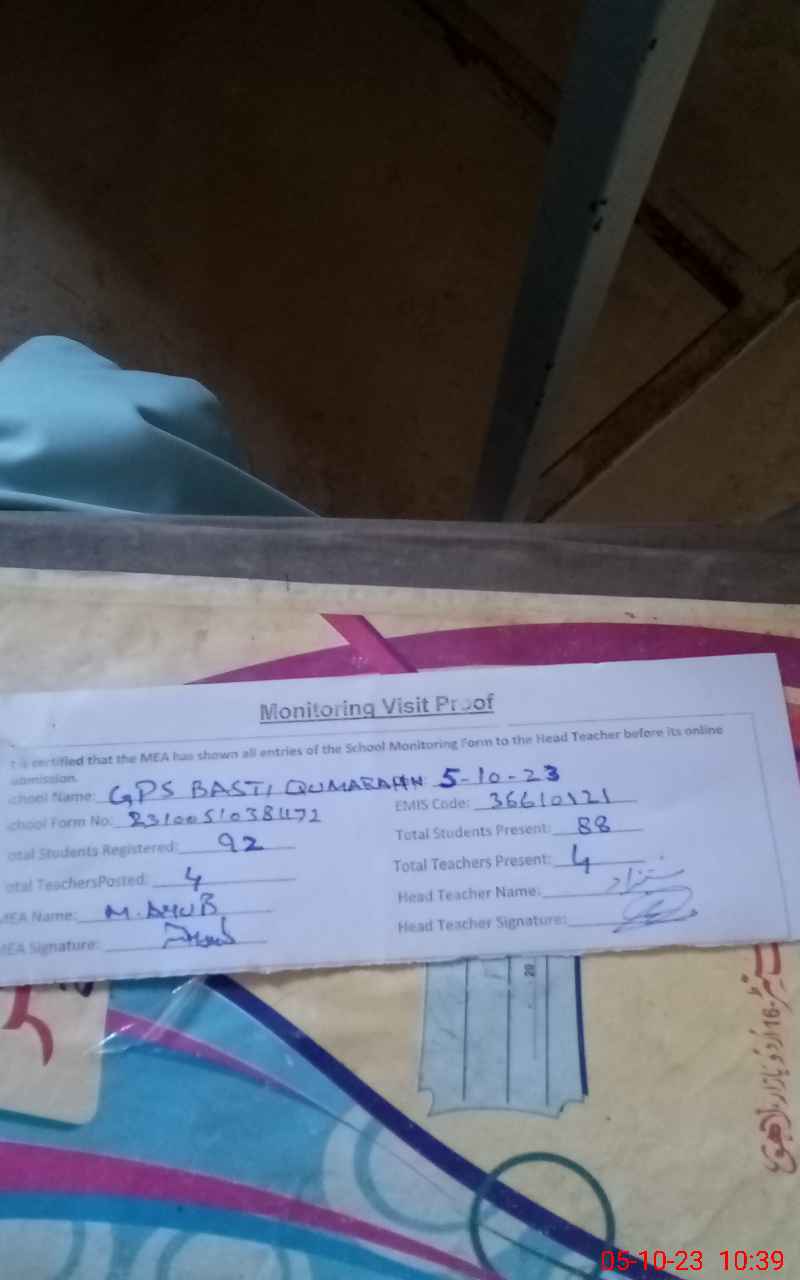 Monitoring Visit Proof
is certified that the MEA has shown all entries of the School Monitoring Form to the Head Teacher before its online
ubmission.
chool Name: GPS BASTI QUMARAHN 5-10-23
chool Form No: EMIS Code: 36610121
otal Students Registered: 92 Total Students Present: 88
otal TeachersPosted: 4 Total Teachers Present: 4
MEA Name: M. AYUB Head Teacher Name:
MEA Signature: Head Teacher Signature:
20
اردو بازار، لاہور
05-10-23 10:39